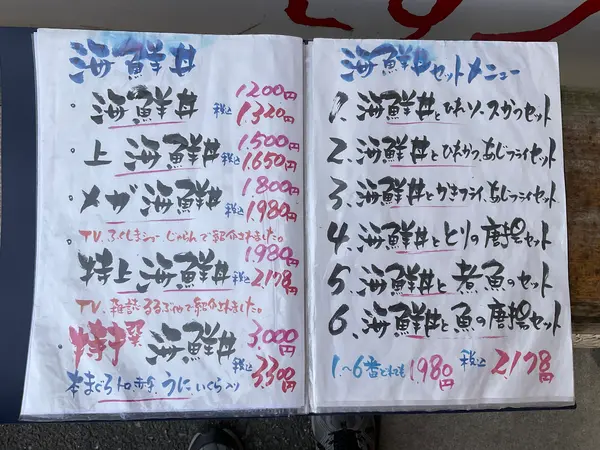 海鮮丼
・海鮮丼 1,200円 税込 1,320円
・上海鮮丼 1,500円 税込 1,650円
・メガ海鮮丼 1,800円 税込 1,980円
TV.ふくしまショー じゃらんで紹介されました。
・特上海鮮丼 1,980円 税込 2,178円
TV.雑誌るるぶ で紹介されました。
海鮮丼 3,000円 税込 3,300円
本まぐろトロ 赤身、うに いくら入り
海鮮丼セットメニュー
1. 海鮮丼とひれソースかつセット
2. 海鮮丼とひれかつ、あじフライセット
3. 海鮮丼とかきフライ、あじフライセット
4. 海鮮丼ととりの唐揚セット
5. 海鮮丼と煮魚のセット
6. 海鮮丼と魚の唐揚セット
1.〜6番どれでも 1,980円 税込 2,178円